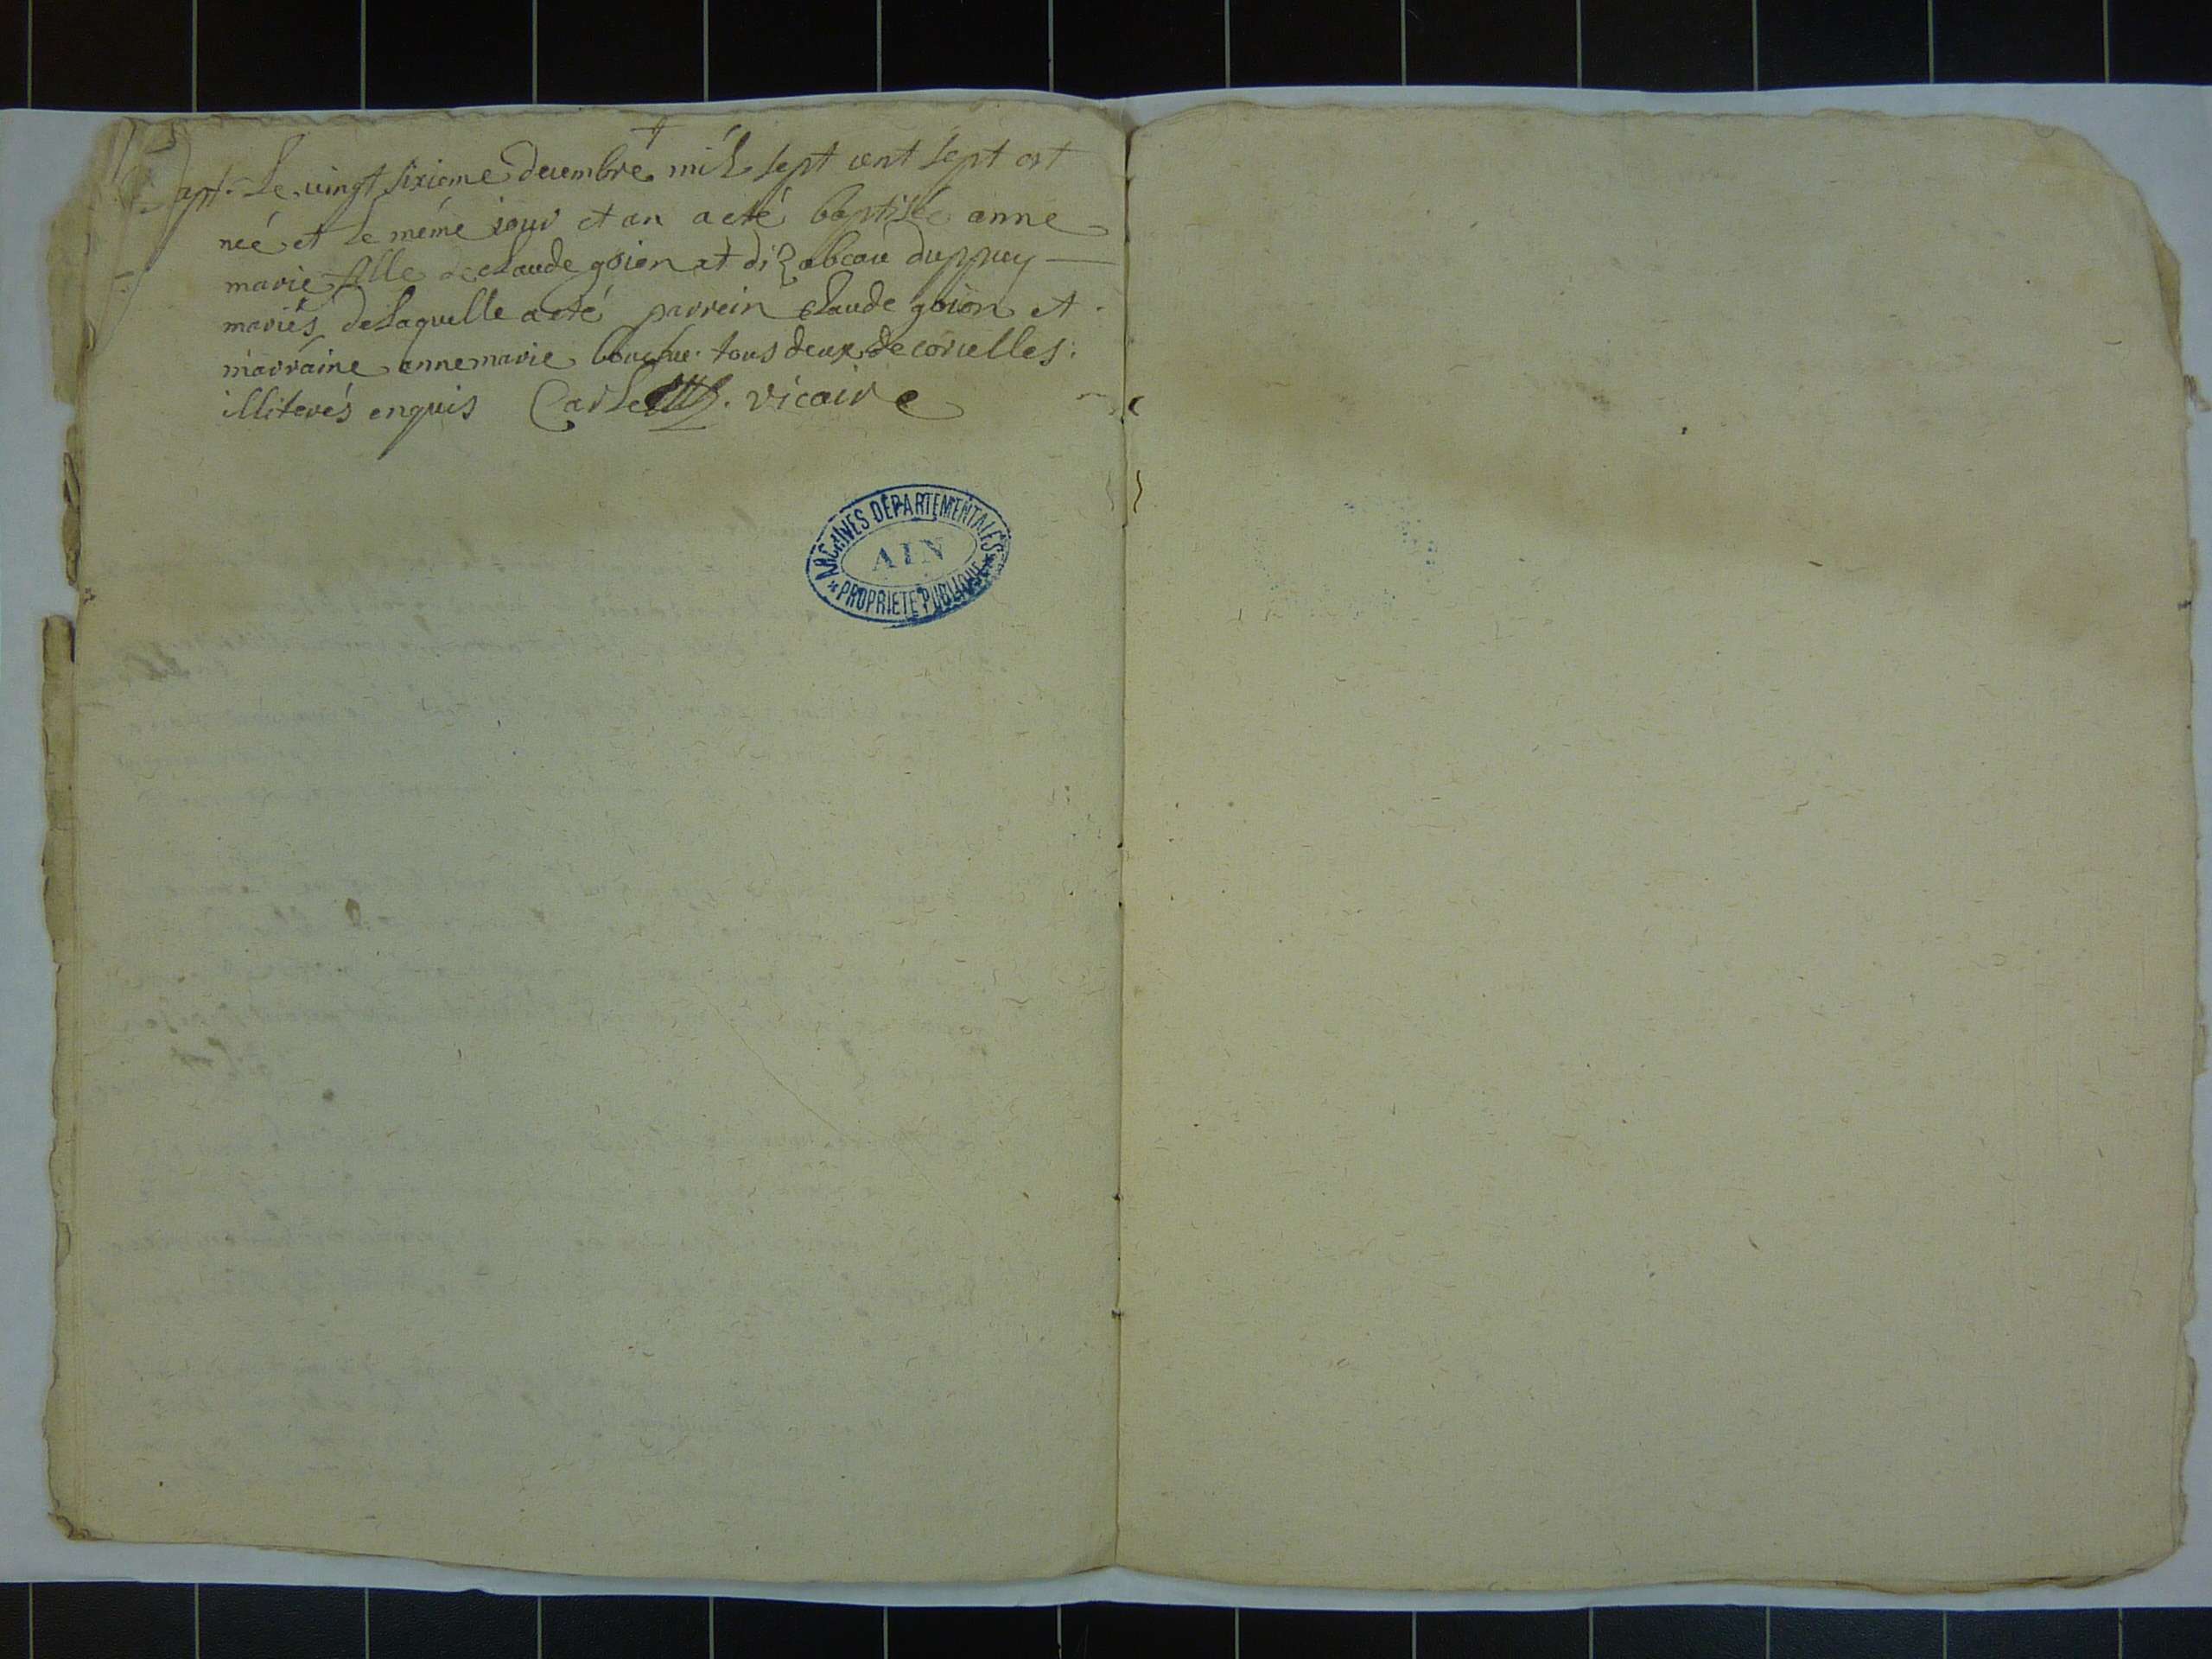 Bapt. Le vingt sixieme decembre mil sept cent sept est
née et le méme iour et an a eté baptisée anne
marie fille de claude goion et dizabeau duppuy
mariés de laquelle a eté parrein claude goion et
marraine anne marie tous deux de corcelles.
illiterés enquis vicaire
ARCHIVES DÉPARTEMENTALES
AIN
* PROPRIÉTÉ PUBLIQUE *